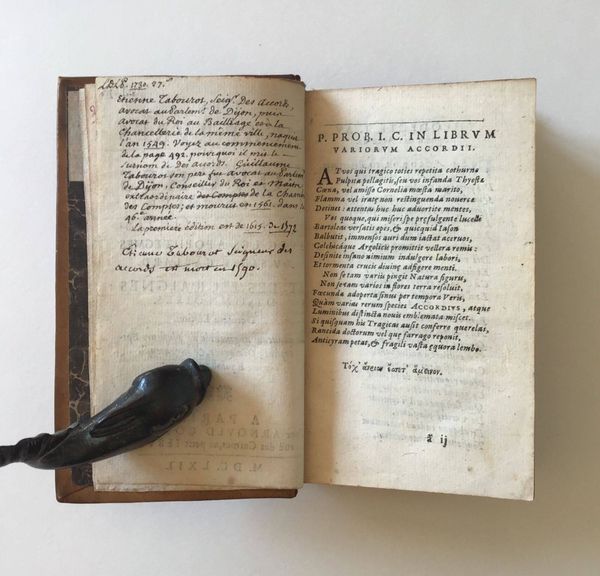 LDLP. 1730. 27.s
Etienne Tabourot, Seigr. Des Accords,
avocat au Parlemt. de Dijon, puis
avocat du Roi au Bailliage et à la
Chancellerie de la même ville, naquit
l'an 1549. Voyez au commencement
de la page 492. pourquoi il mit le
surnom de des accords. Guillaume
Tabourot son pere fut avocat au Parlem
de Dijon, Conseiller du Roi et Maitre
extraordinaire des Comptes de la Chamb
des Comptes, et mourut en 1561. dans sa
46e. année.
La premiere édition est de 1615. de 1572
Etienne Tabourot Seigneur des
accords est mort en 1590.
A PAR
M. DC. LXII.
P. PROB. I. C. IN LIBRVM
VARIORVM ACCORDII.
AT vos qui tragico toties repetita cothurno
Pulpita pellegitis, seu vos infanda Thyestæ
Cœna, vel amisso Cornelia mœsta marito,
Flamma vel irato non restinguenda nouercæ
Detinet: attentas huc huc aduortite mentes,
Vos quoque, qui miseri spe prefulgente lucelli
Bartoleæ versatis opes, & quicquid Iason
Balbutit, immensos auri dum iactat aceruos,
Colchicáque Argolicis promittit vellera remis:
Desinite insano nimium indulgere labori,
Et tormenta crucis diuinæ adfigere menti.
Non se tam variis pingit Natura figuris,
Non se tam varios in flores terra resoluit,
Fœcunda adoperta sinus per tempora Veris,
Quàm varias rerum species ACCORDIVS, atque
Luminibus distincta nouis emblemata miscet.
Si quisquam his Tragicas ausit conferre querelas,
Rancida doctorum vel quæ farrago reponit,
Anticyram petat, & fragili vasta æquora lembo.
ã ij